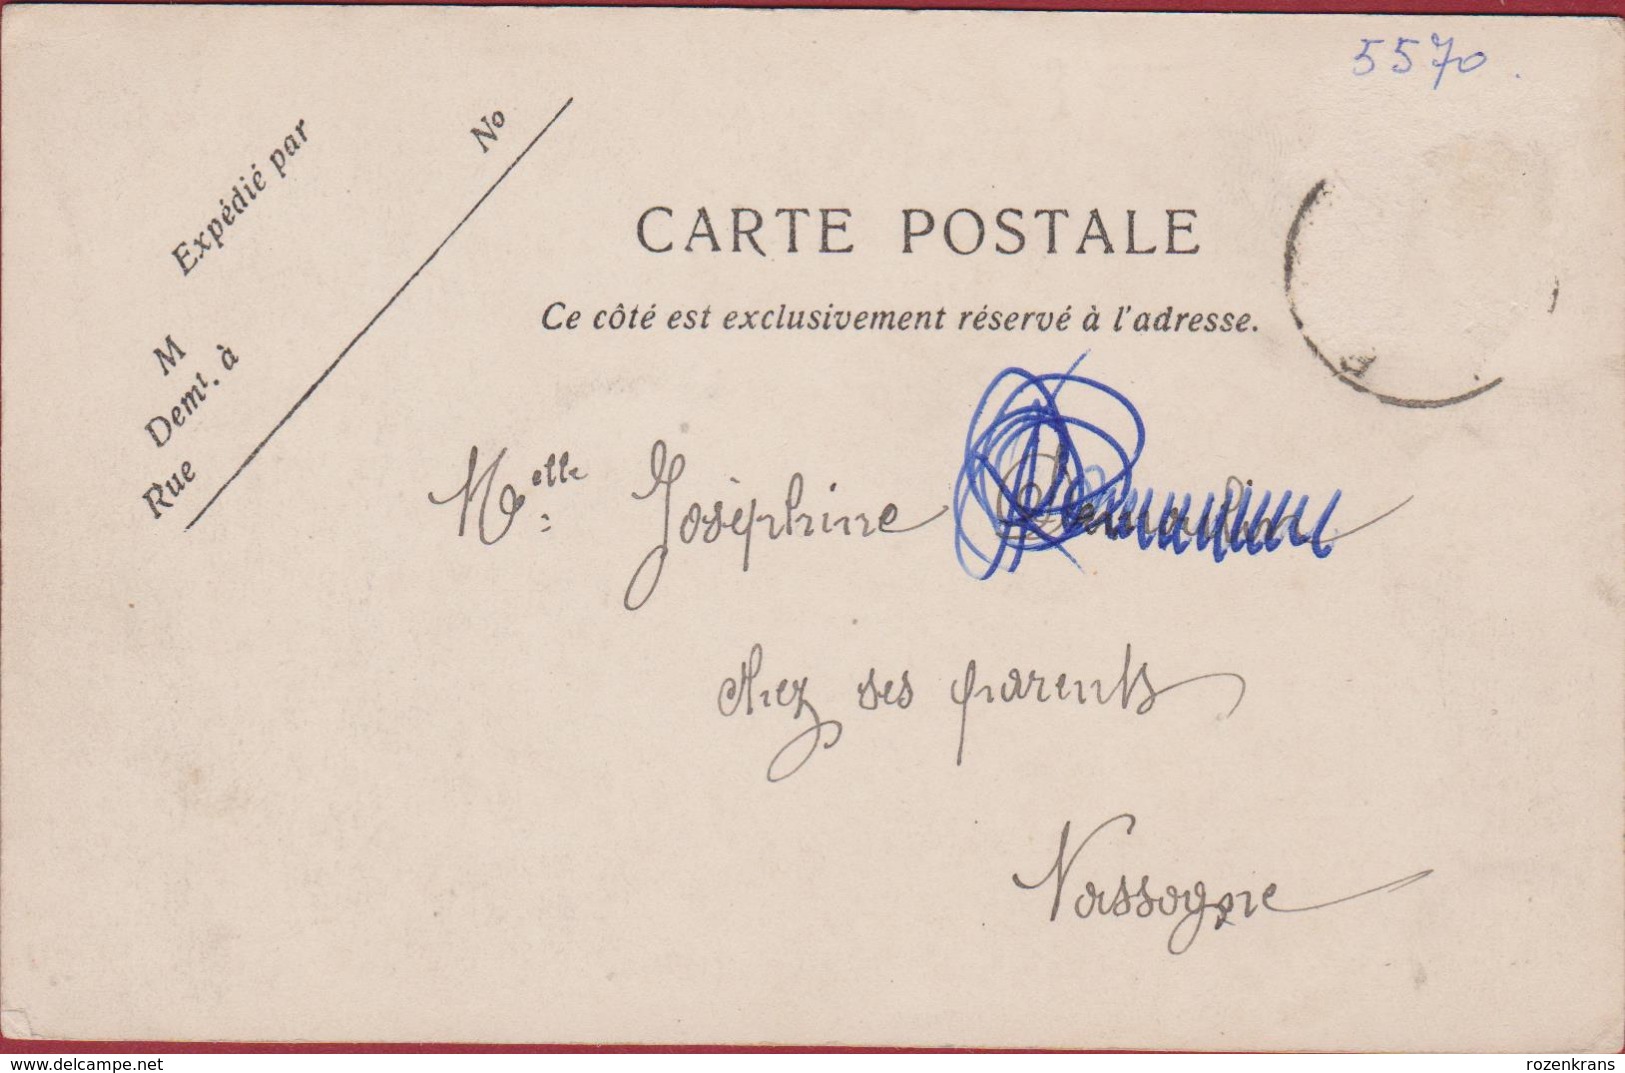 5570.
Expédié par
No
M
Demt. à
Rue
CARTE POSTALE
Ce côté est exclusivement réservé à l'adresse.
Melle: Joséphine
chez ses parents
Vassogne
delcampe.net
rozenkrans